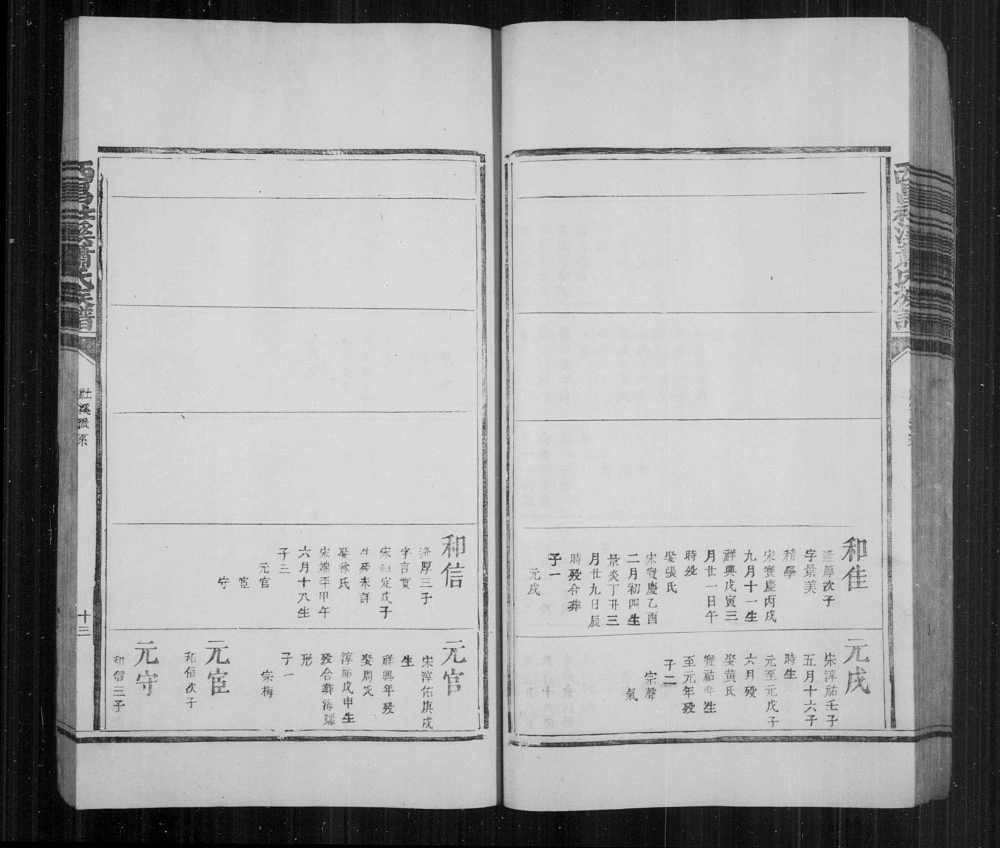 和隹
逢厚次子
字景美
積學
宋寶慶丙戌
九月十一生
祥興戊寅三
月廿一日午
時歿
娶張氏
宋寶慶乙酉
二月初四生
景炎丁丑三
月廿九日辰
時歿合葬
子一
元戌
元戌
宋淳祐壬子
五月十六子
時生
元至元戊子
六月歿
娶黃氏
寶祐年生
至元年歿
子二
宗馨
氣
和信
逢厚三子
字言實
宋紹定戊子
生歿未詳
娶徐氏
宋端平甲午
六月十八生
子三
元官
宦
守
元官
宋淳佑庚戌
生
祥興年歿
娶周氏
淳祐戊申生
歿合葬海螺
形
子一
宗梅
元宦
和信次子
元守
和信三子
西昌社溪蕭氏族譜
社溪
十三